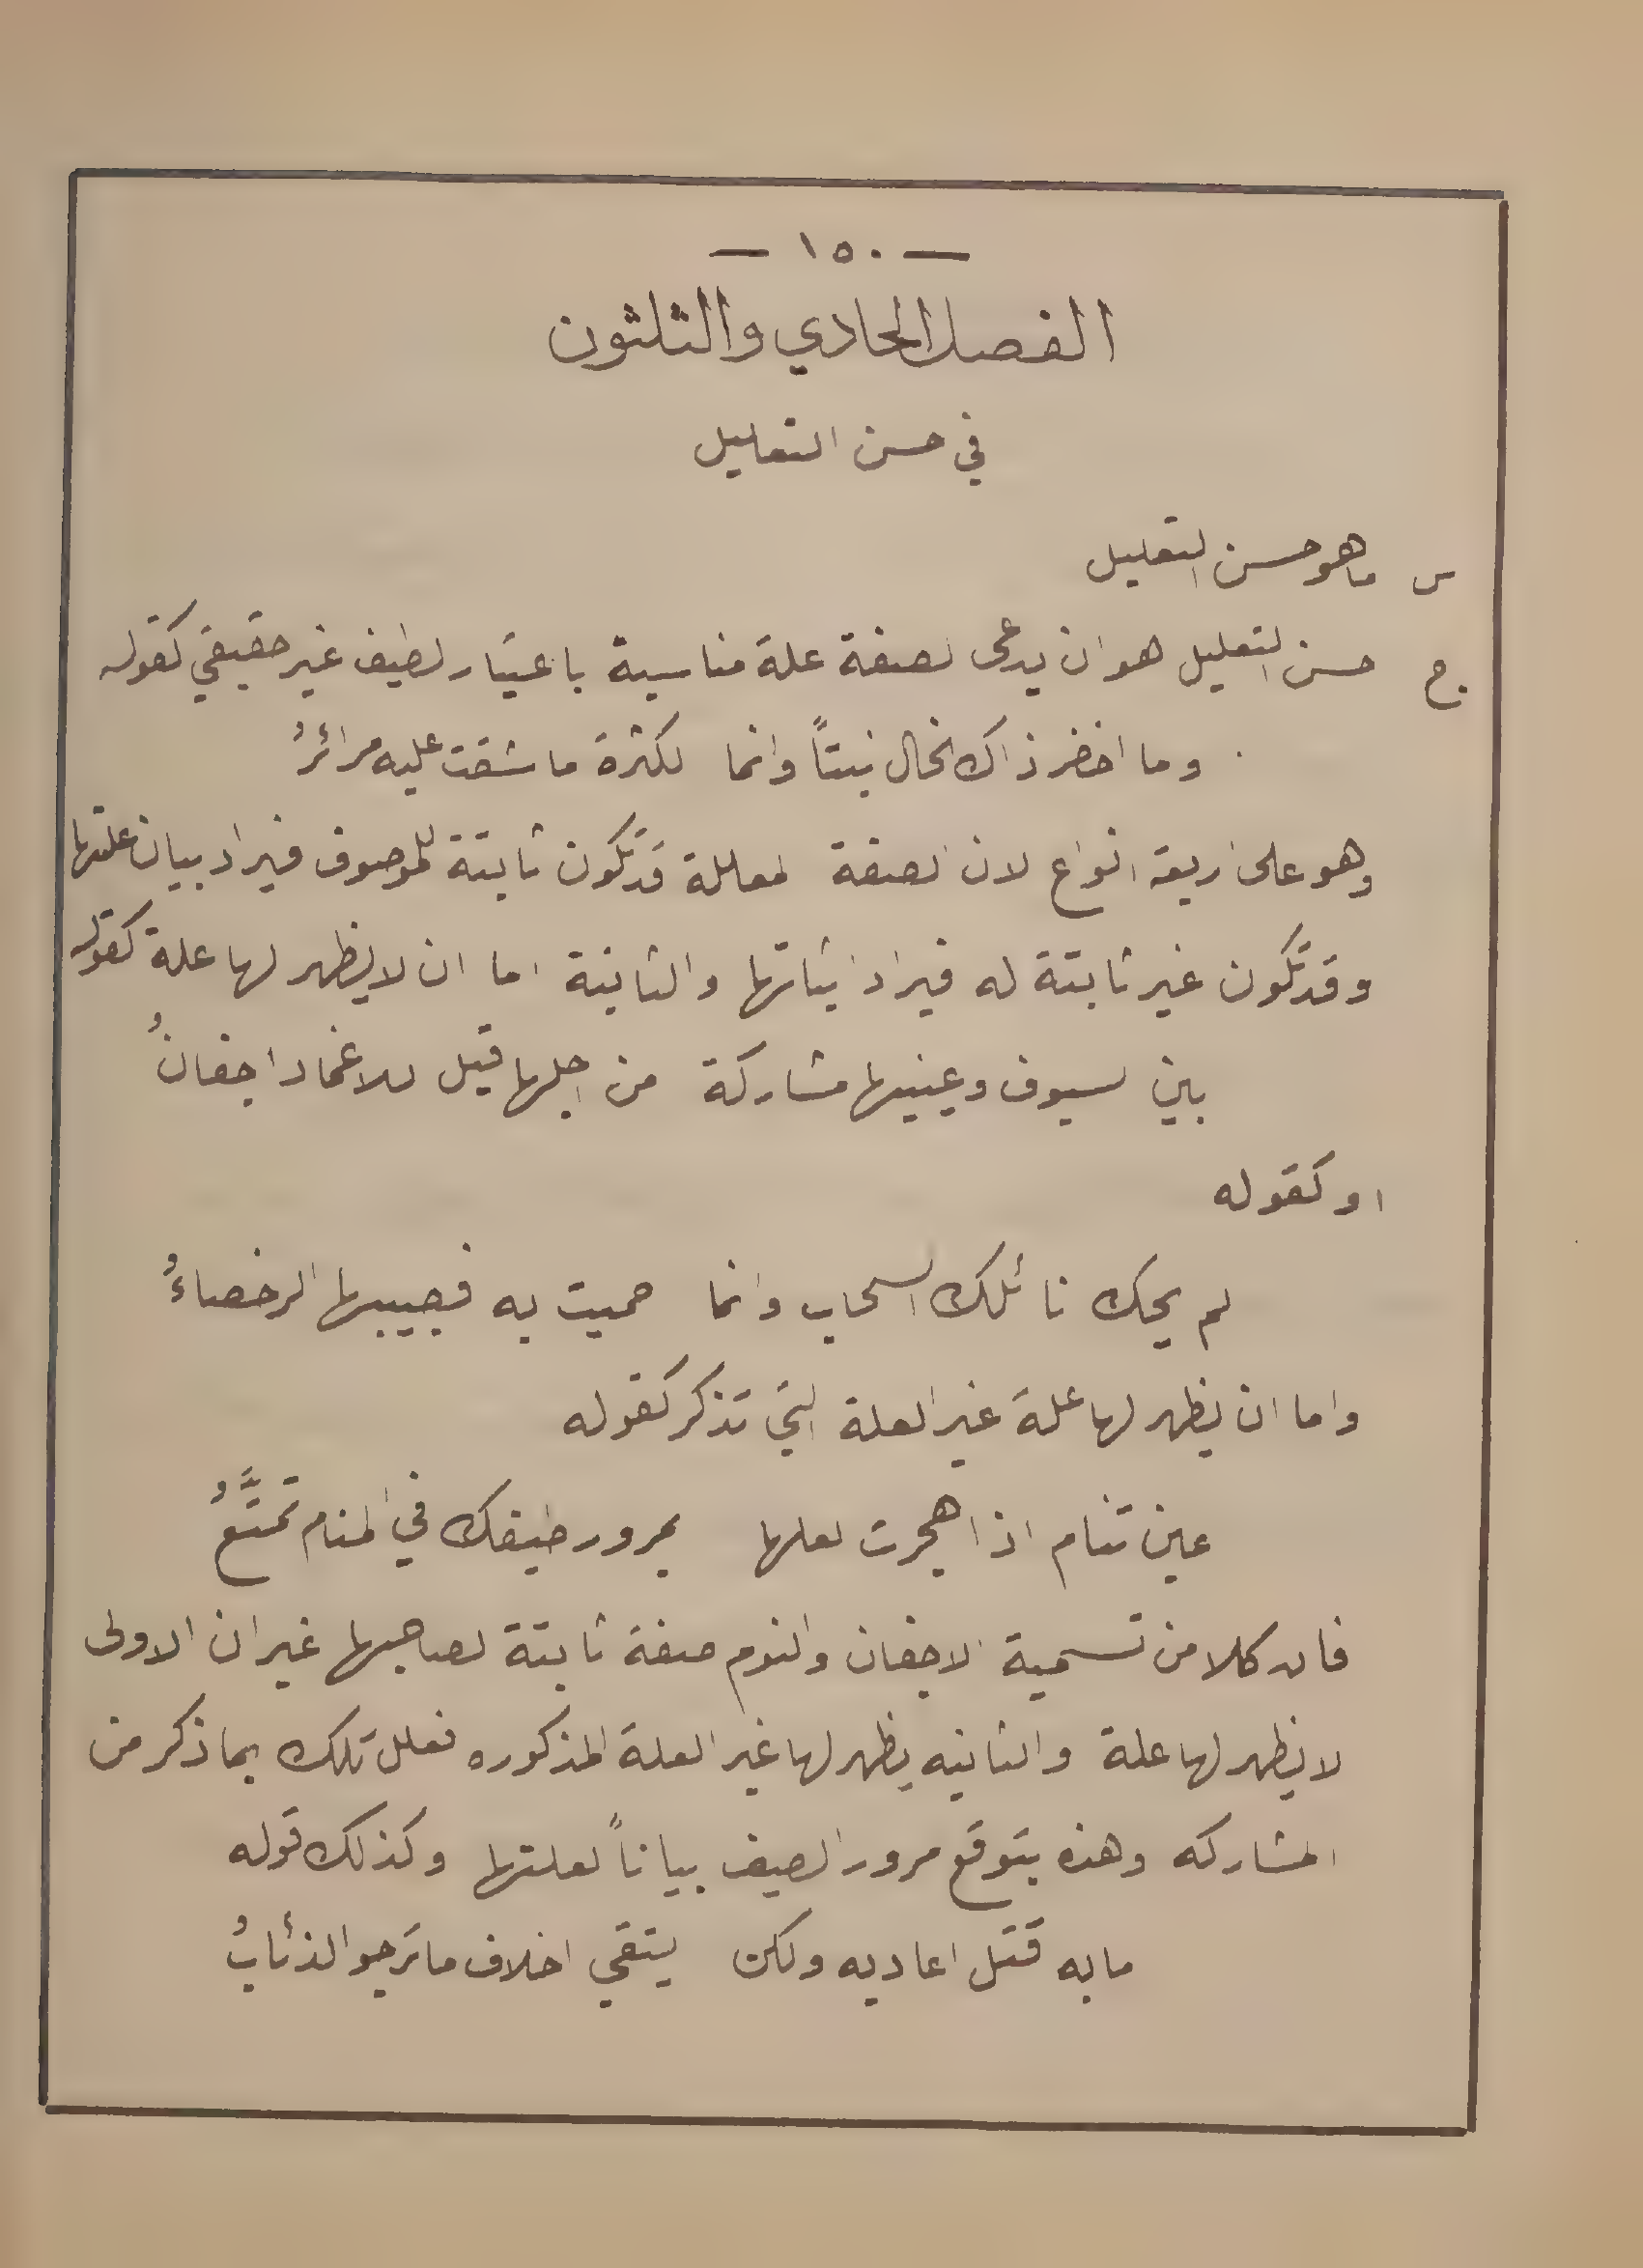 — ١٥٠ —
الفصل الحادي والثلثون
في حسن التعليل
س ما هو حسن التعليل
ج حسن التعليل هو ان يدعى لصفة علة مناسبة باعتبار لطيف غير حقيقي كقوله
وما اخضر ذاك الخال نبتاً وانما لكثرة ما شقت عليه مرائرُ
وهو على اربعة انواع لان الصفة المعللة قد تكون ثابتة للموصوف فيراد بيان علتها
وقد تكون غير ثابتة له فيراد اثباتها والثانية اما ان لا يظهر لها علة كقوله
بين السيوف وعينيها مشاركة من اجلها قيل للاغماد اجفانُ
او كقوله
لم يحك نائلك السحاب وانما حميت به فصبيبها الرخصاءُ
واما ان يظهر لها علة غير العلة التي تذكر كقوله
عين تنام اذا هجرت لعلها بمرور طيفك في المنام تمتَّعُ
فان كلا من تسمية الاجفان والنوم صفة ثابتة لصاحبها غير ان الاولى
لا يظهر لها علة والثانيه يظهر لها غير العلة المذكوره فعلل تلك بما ذكر من
المشاركه وهذه بتوقع مرور الصيف بياناً لعلتها وكذلك قوله
ما به قتل اعاديه ولكن يتقي اخلاف ما ترجو الذئابُ